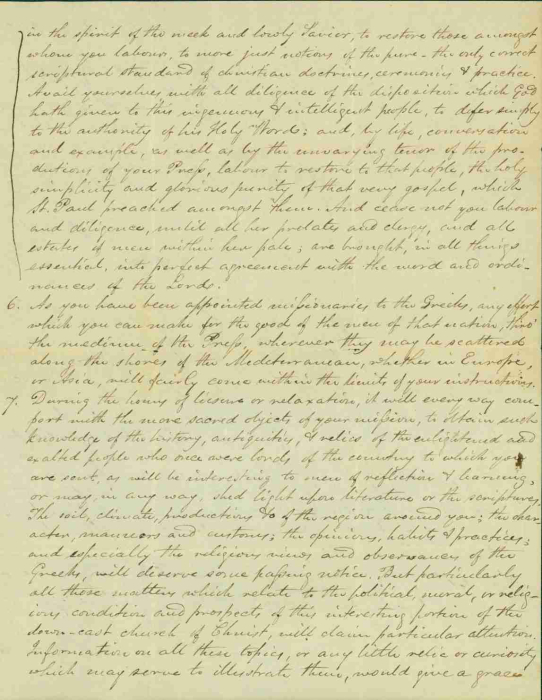 in the spirit of the meek and lowly Savior, to restore those amongst
whom you labour, to more just notions of the pure - the only correct
scriptural standard of christian doctrines, ceremonies & practice.
Avail yourselves with all diligence of the disposition which God
hath given to this ingenious & intelligent people, to defer simply
to the authority of his Holy Word; and, by life, conversation
and example, as well as by the unvarying tenor of the pro-
ductions of your Press, labour to restore to that people, the holy
simplicity and glorious purity of that very gospel, which
St. Paul preached amongst them. And cease not your labour
and diligence, until all her prelates and clergy, and all
estates of men within her pale; are brought, in all things
essential, into perfect agreement with the word and ordi-
nances of the Lord.
6. As you have been appointed missionaries to the Greeks, any effort
which you can make for the good of the men of that nation, thro'
the medium of the Press, wherever they may be scattered
along the shores of the Mediterranean, whether in Europe,
or Asia, will fairly come within the limits of your instructions.
7. During the hours of leisure or relaxation, it will every way com-
port with the more sacred objects of your mission, to obtain such
knowledge of the history, antiquities, & relics of the enlightened and
exalted people who once were lords of the country to which you
are sent, as will be interesting to men of reflection & learning,
or may, in any way, shed light upon literature or the scriptures.
The soil, climate, productions &c of the region around you; the char-
acter, manners and customs; the opinions, habits & practices;
and especially the religious views and observances of the
Greeks, will deserve some passing notice. But particularly
all those matters which relate to the political, moral, or relig-
ious condition and prospects, of this interesting portion of the
down-cast church of Christ, will claim particular attention.
Information on all these topics, or any little relic or curiosity
which may serve to illustrate them, would give a grace